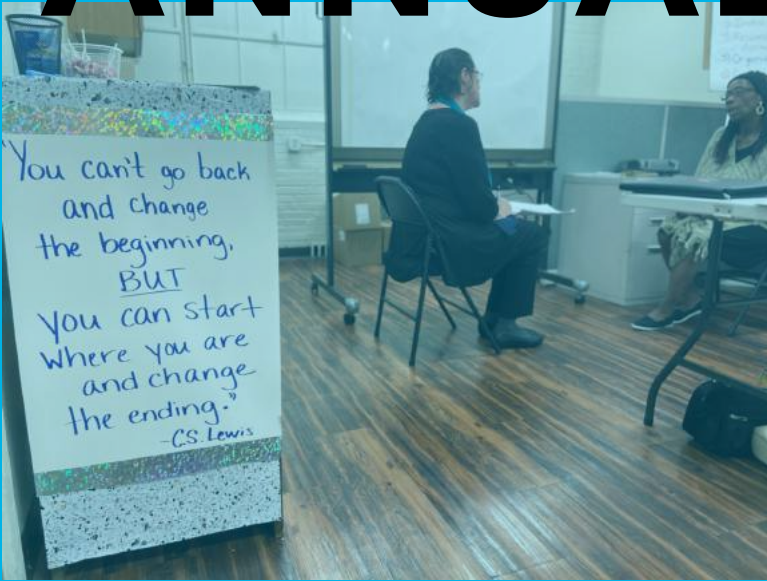 ANNUAL
"You can't go back
and change
the beginning,
BUT
you can start
where you are
and change
the ending."
-C.S. Lewis